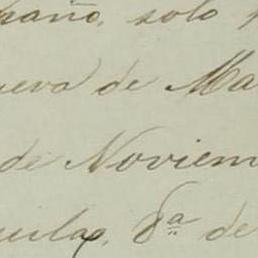 paño, solo
ueva de Ma
de Noviem
uilas, 8ª de